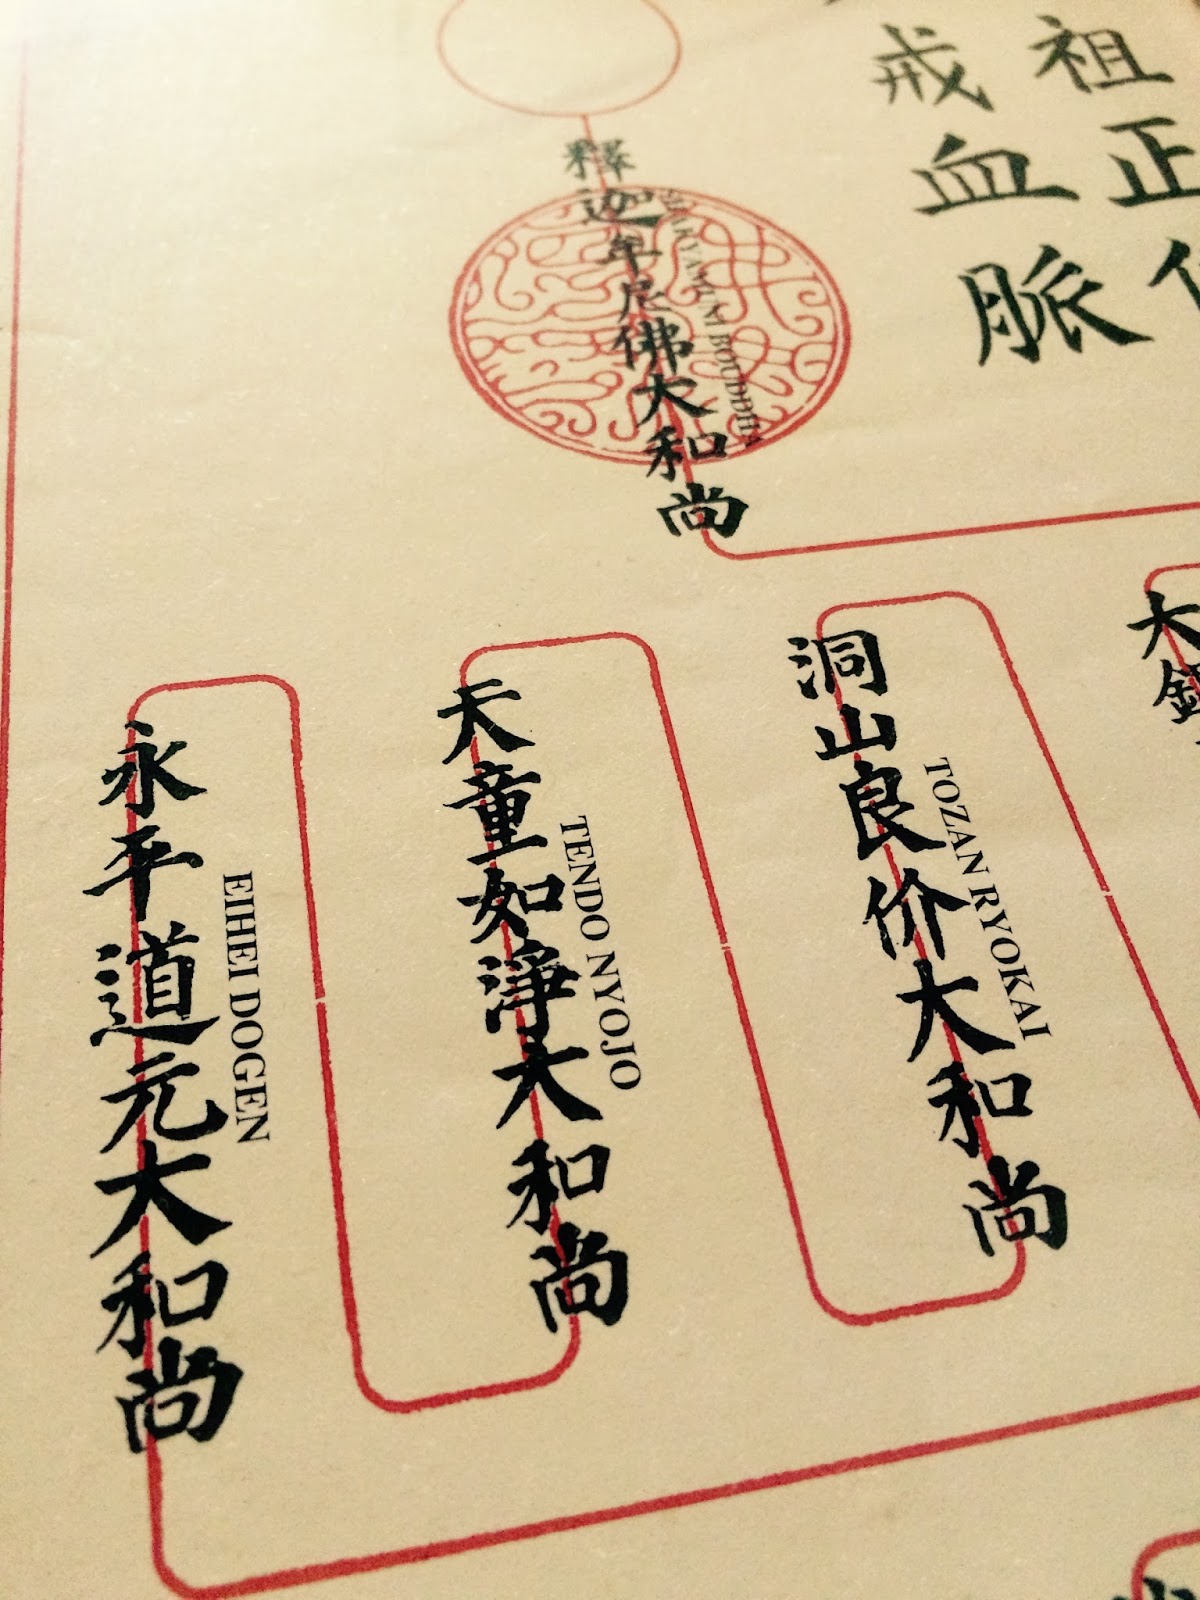 祖正
戒血脈
釋迦牟尼佛大和尚
SHAKYAMUNI BOUDDHA
大
洞山良价大和尚
TOZAN RYOKAI
天童如淨大和尚
TENDO NYOJO
永平道元大和尚
EIHEI DOGEN